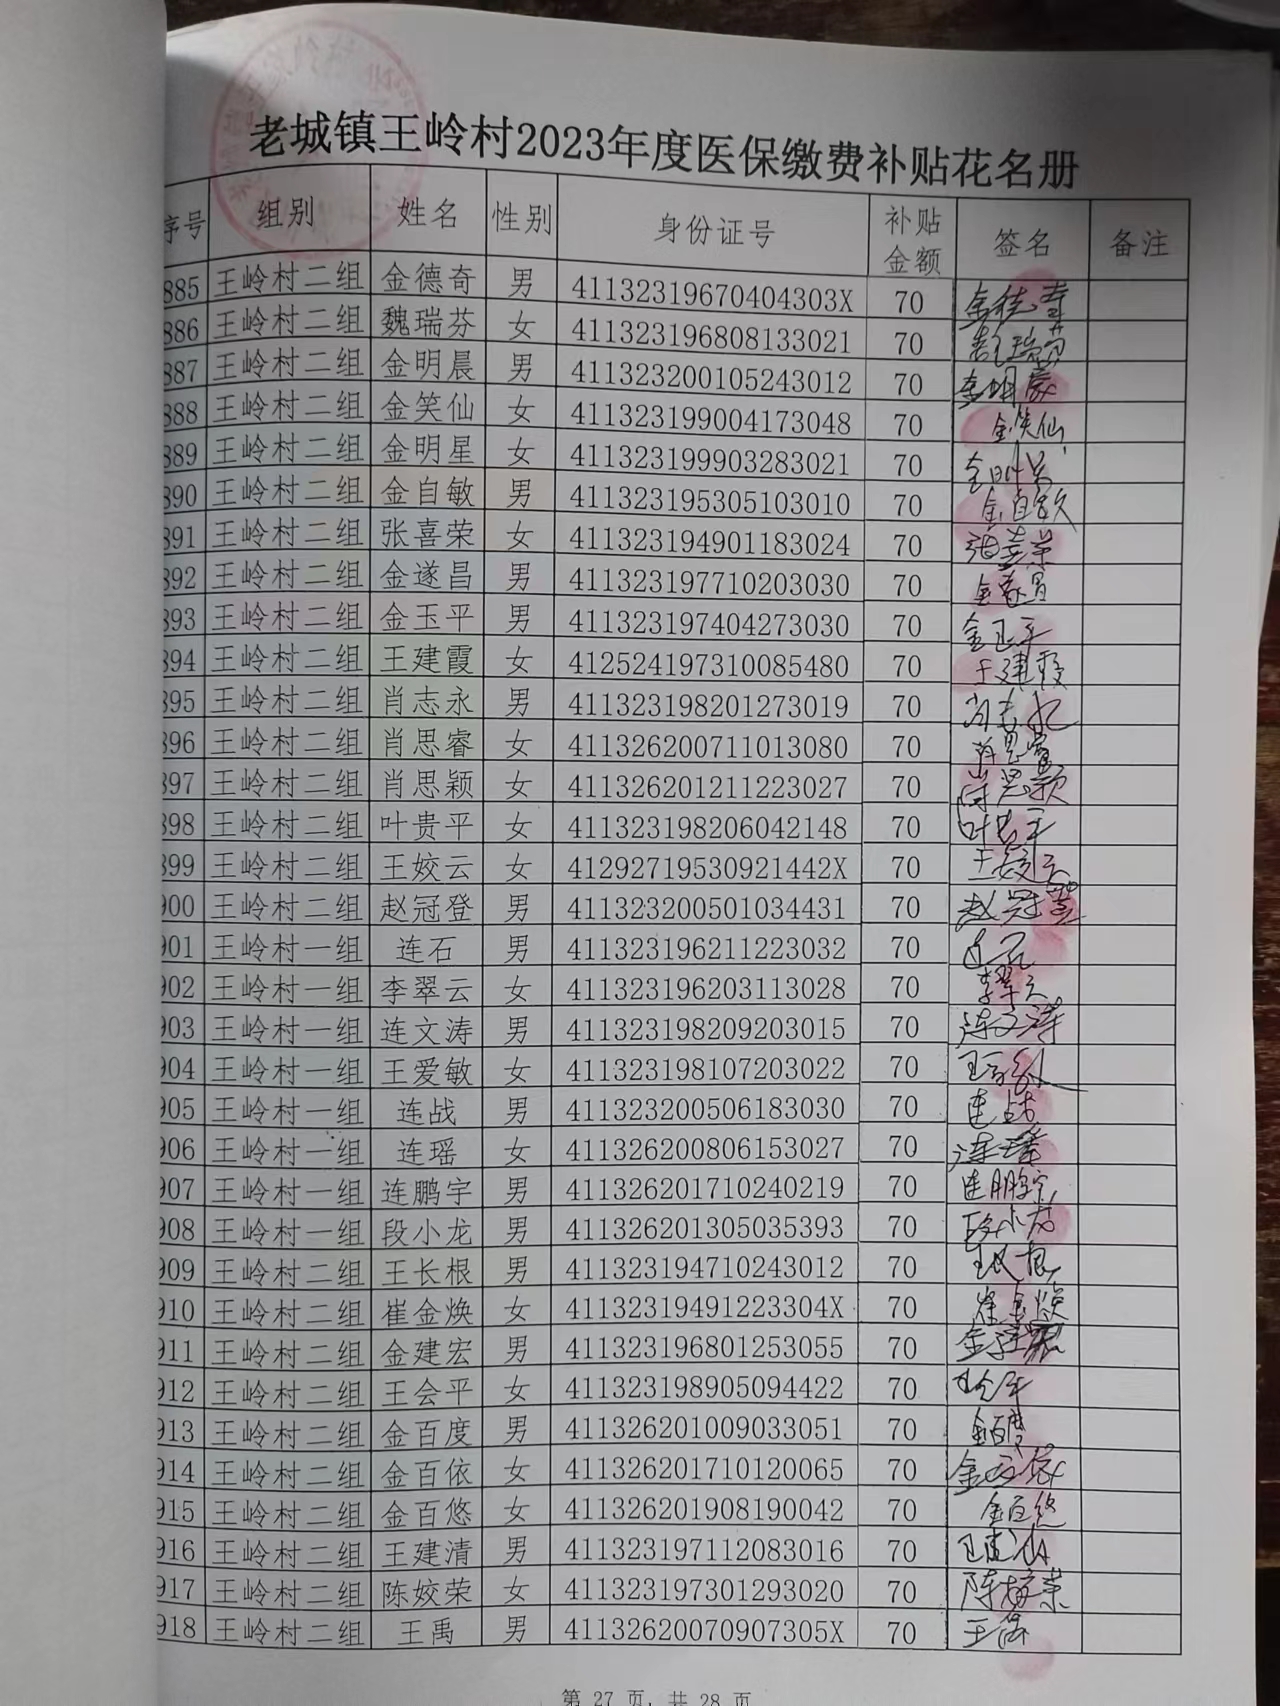 老城镇王岭村2023年度医保缴费补贴花名册
序号 组别 姓名 性别 身份证号 补贴金额 签名 备注
885 王岭村二组 金德奇 男 41132319670404303X 70
886 王岭村二组 魏瑞芬 女 411323196808133021 70
887 王岭村二组 金明晨 男 411323200105243012 70
888 王岭村二组 金笑仙 女 411323199004173048 70 金笑仙
889 王岭村二组 金明星 女 411323199903283021 70
890 王岭村二组 金自敏 男 411323195305103010 70 金自敏
891 王岭村二组 张喜荣 女 411323194901183024 70 张喜荣
892 王岭村二组 金遂昌 男 411323197710203030 70
893 王岭村二组 金玉平 男 411323197404273030 70 金玉平
894 王岭村二组 王建霞 女 412524197310085480 70 王建霞
895 王岭村二组 肖志永 男 411323198201273019 70 肖志永
896 王岭村二组 肖思睿 女 411326200711013080 70
897 王岭村二组 肖思颖 女 411326201211223027 70
898 王岭村二组 叶贵平 女 411323198206042148 70
899 王岭村二组 王姣云 女 41292719530921442X 70 王姣云
900 王岭村二组 赵冠登 男 411323200501034431 70 赵冠登
901 王岭村一组 连石 男 411323196211223032 70 连石
902 王岭村一组 李翠云 女 411323196203113028 70 李翠云
903 王岭村一组 连文涛 男 411323198209203015 70 连文涛
904 王岭村一组 王爱敏 女 411323198107203022 70
905 王岭村一组 连战 男 411323200506183030 70 连战
906 王岭村一组 连瑶 女 411326200806153027 70 连瑶
907 王岭村一组 连鹏宇 男 411326201710240219 70 连鹏宇
908 王岭村一组 段小龙 男 411326201305035393 70 段小龙
909 王岭村二组 王长根 男 411323194710243012 70 王长根
910 王岭村二组 崔金焕 女 41132319491223304X 70 崔金焕
911 王岭村二组 金建宏 男 411323196801253055 70
912 王岭村二组 王会平 女 411323198905094422 70 王会平
913 王岭村二组 金百度 男 411326201009033051 70 金百度
914 王岭村二组 金百依 女 411326201710120065 70 金百依
915 王岭村二组 金百悠 女 411326201908190042 70 金百悠
916 王岭村二组 王建清 男 411323197112083016 70
917 王岭村二组 陈姣荣 女 411323197301293020 70 陈姣荣
918 王岭村二组 王禹 男 41132620070907305X 70
第 27 页, 共 28 页